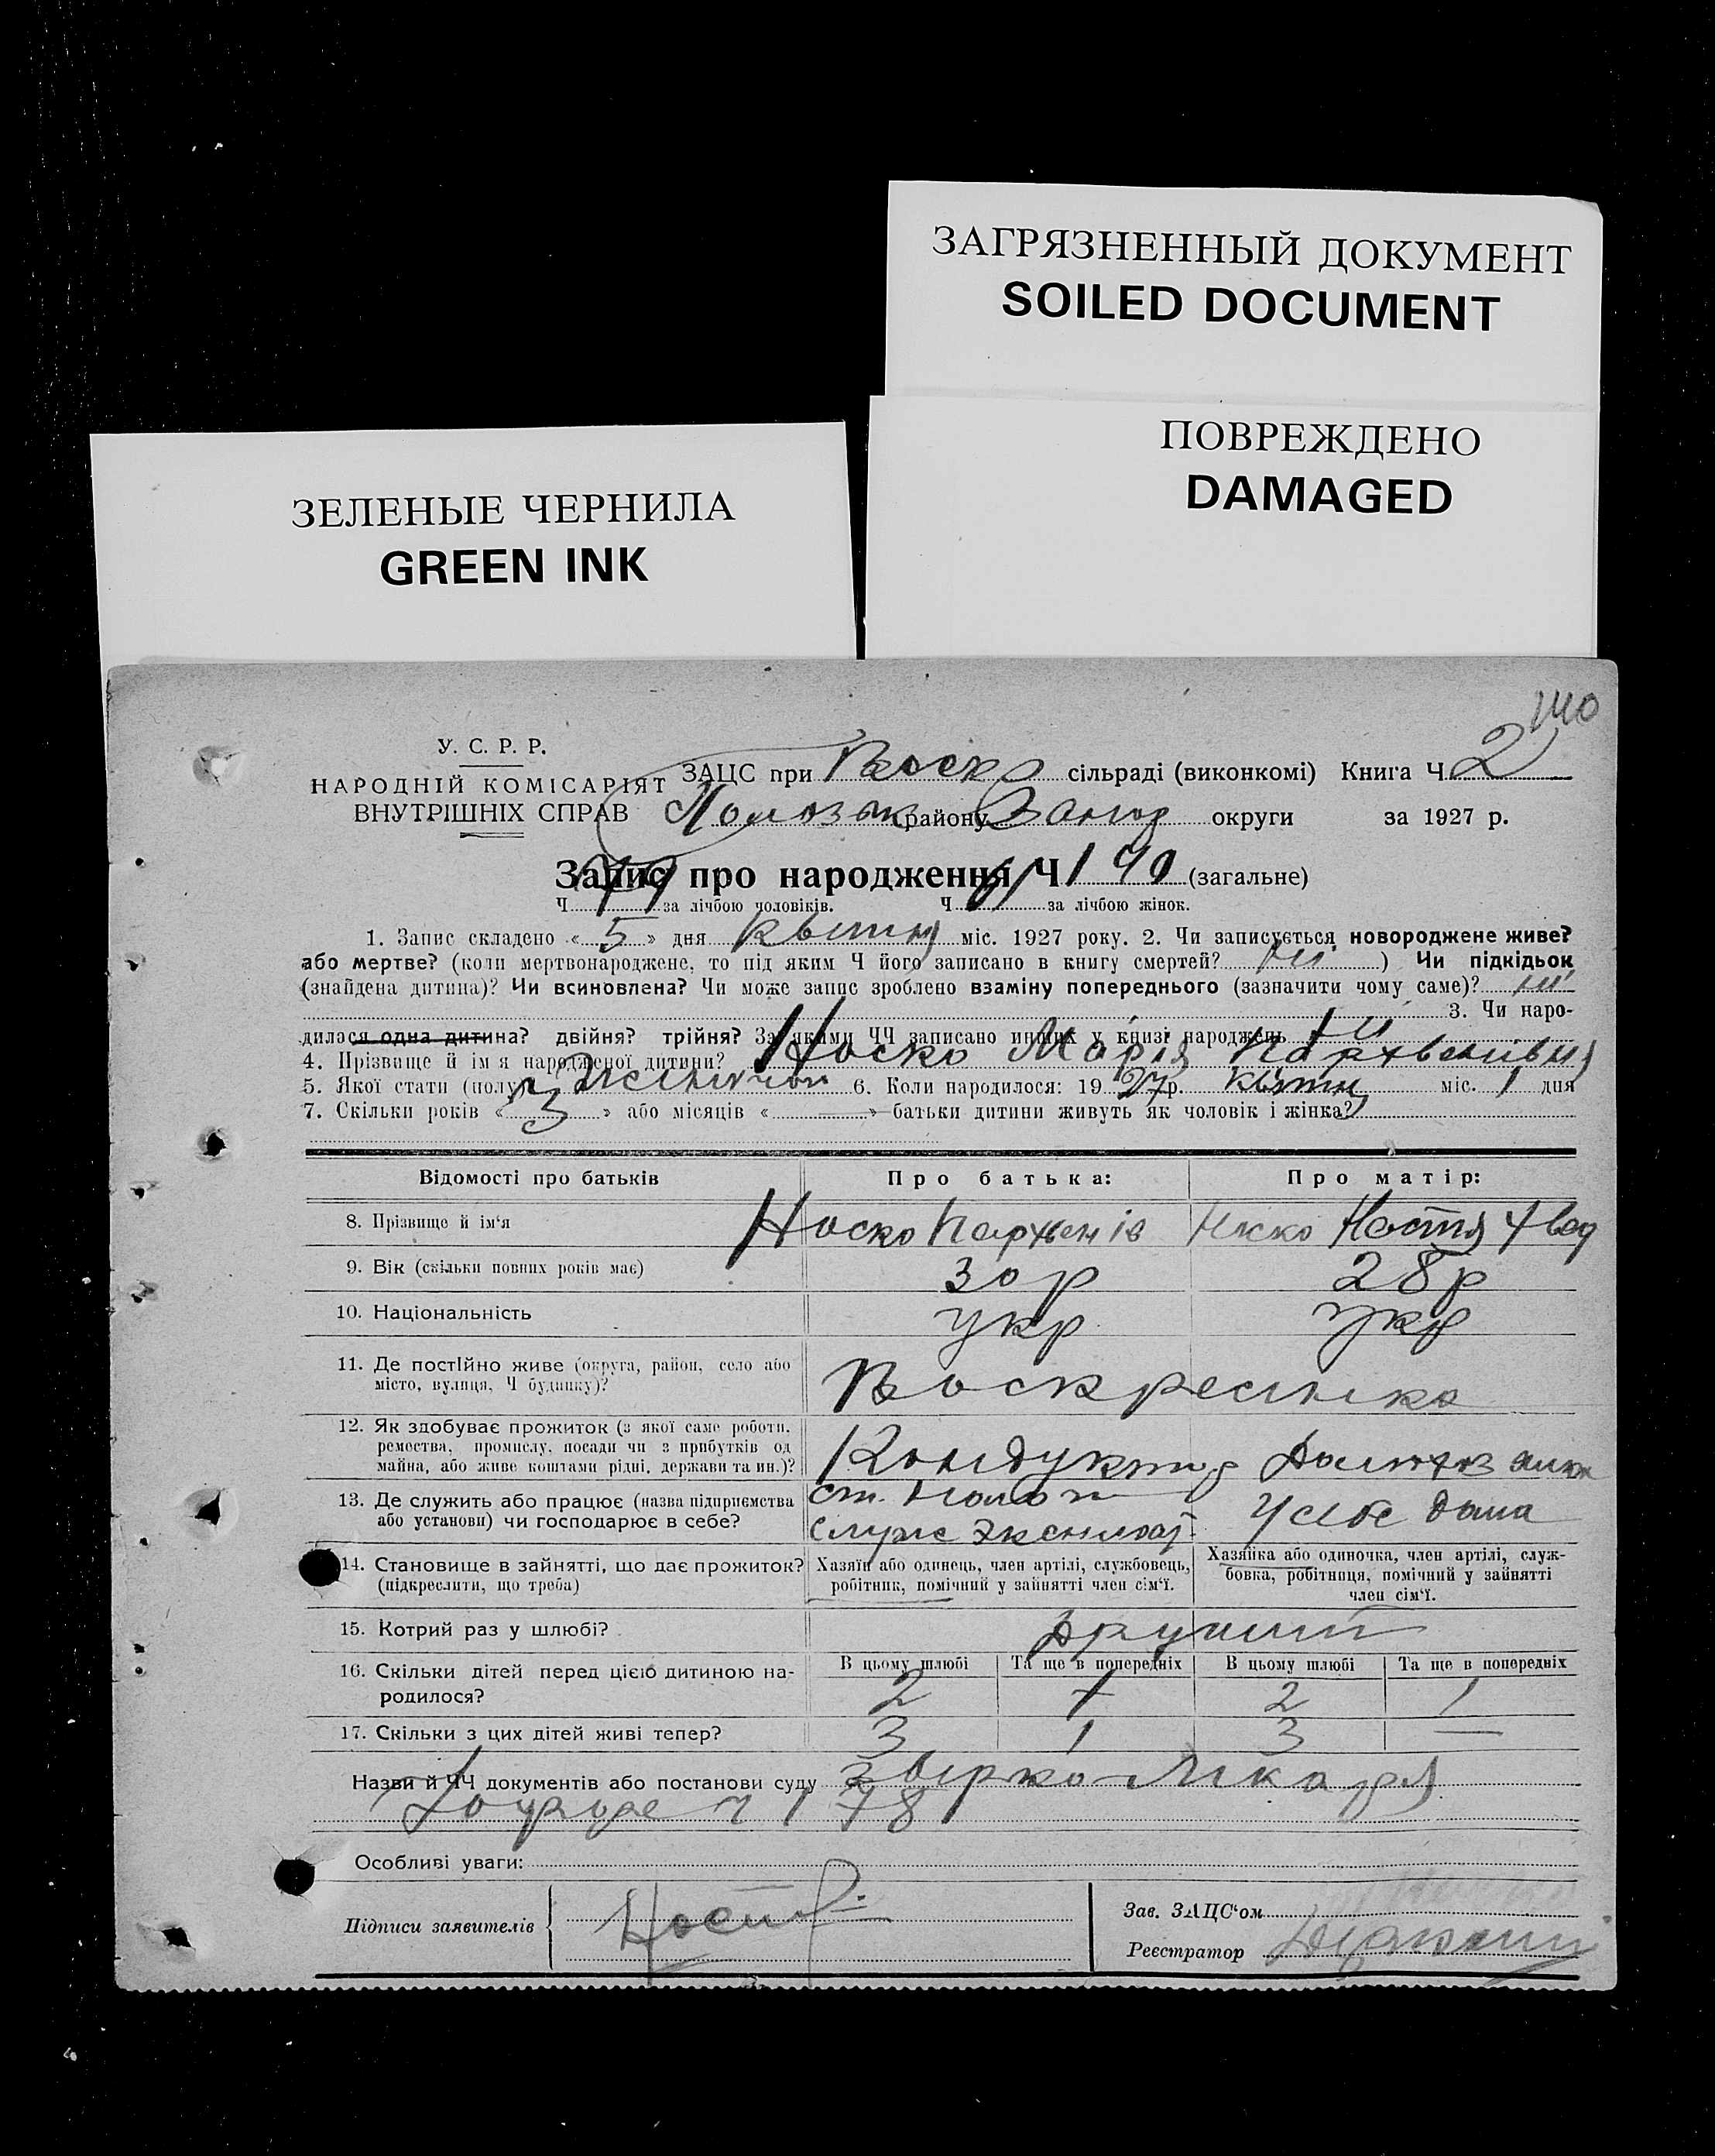 ЗАГРЯЗНЕННЫЙ ДОКУМЕНТ
SOILED DOCUMENT
ПОВРЕЖДЕНО
DAMAGED
ЗЕЛЕНЫЕ ЧЕРНИЛА
GREEN INK
140
У. С. Р. Р.
НАРОДНІЙ КОМІСАРІЯТ
ВНУТРІШНІХ СПРАВ
ЗАЦС при Воскр сільраді (виконкомі) Книга Ч. 2
району округи за 1927 р.
Запис про народження Ч 140 (загальне)
Ч. 79 за лічбою чоловіків. Ч. 61 за лічбою жінок.
1. Запис складено « 5 » дня квітня міс. 1927 року. 2. Чи записується новороджене живе?
або мертве? (коли мертвонароджене, то під яким Ч його записано в книгу смертей? ні ) Чи підкідьок
(знайдена дитина)? Чи всиновлена? Чи може запис зроблено взаміну попереднього (зазначити чому саме)? ні
3. Чи наро-
дилася одна дитина? двійня? трійня? За якими ЧЧ записано инших у книзі народжень ні
4. Прізвище й ім'я народженої дитини? Носко Марія Пархвенівна
5. Якої стати (полу) Жіночої 6. Коли народилося: 19 27 р. квітня міс. 1 дня
7. Скільки років « 3 » або місяців « — » батьки дитини живуть як чоловік і жінка?
Відомості про батьків Про батька: Про матір:
8. Прізвище й ім'я Носко Пархвенів Носко Настя Хвед
9. Вік (скільки повних років має) 30 р 28 р
10. Національність укр укр
11. Де постійно живе (округа, район, село або
місто, вулиця, Ч будинку)? Воскресенка
12. Як здобуває прожиток (з якої саме роботи,
ремества, промислу, посади чи з прибутків од
майна, або живе коштами рідні, держави та ин.)? Кондуктор
13. Де служить або працює (назва підприємства
або установи) чи господарює в себе? ст. служ Эксплоат У себе дома
14. Становище в зайнятті, що дає прожиток?
(підкреслити, що треба)
Хазяїн або одинець, член артілі, службовець,
робітник, помічний у зайнятті член сім'ї.
Хазяйка або одиночка, член артілі, служ-
бовка, робітниця, помічний у зайнятті
член сім'ї.
15. Котрий раз у шлюбі? Другий
16. Скільки дітей перед цією дитиною на-
родилося?
В цьому шлюбі Та ще в попередніх В цьому шлюбі Та ще в попередніх
2 1 2 1
17. Скільки з цих дітей живі тепер? 3 1 3 —
Назви й ЧЧ документів або постанови суду Лікаря
Ч 178
Особливі уваги:
Підписи заявителів
Зав. ЗАЦС'ом
Реєстратор